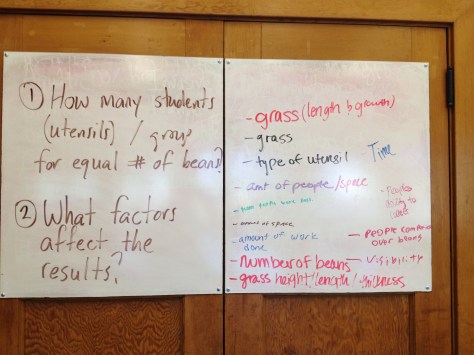 ① How many students
(utensils) / group
for equal # of beans?
② What factors
affect the
results?
- grass (length & growth)
- grass
- type of utensil
Time
- amt of people/space
- amount of space
- amount of work
done
- number of beans
- grass height/length/thickness
- People
to
- people
over beans
- visibility